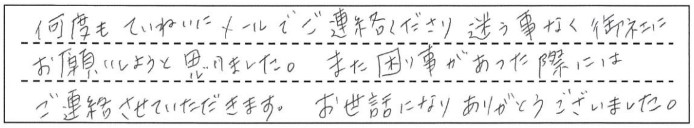 何度も ていねいに メールでご連絡くださり 迷う事なく 御社に
お願いしようと思いました。 また困り事があった際には
ご連絡させていただきます。 お世話になり ありがとうございました。